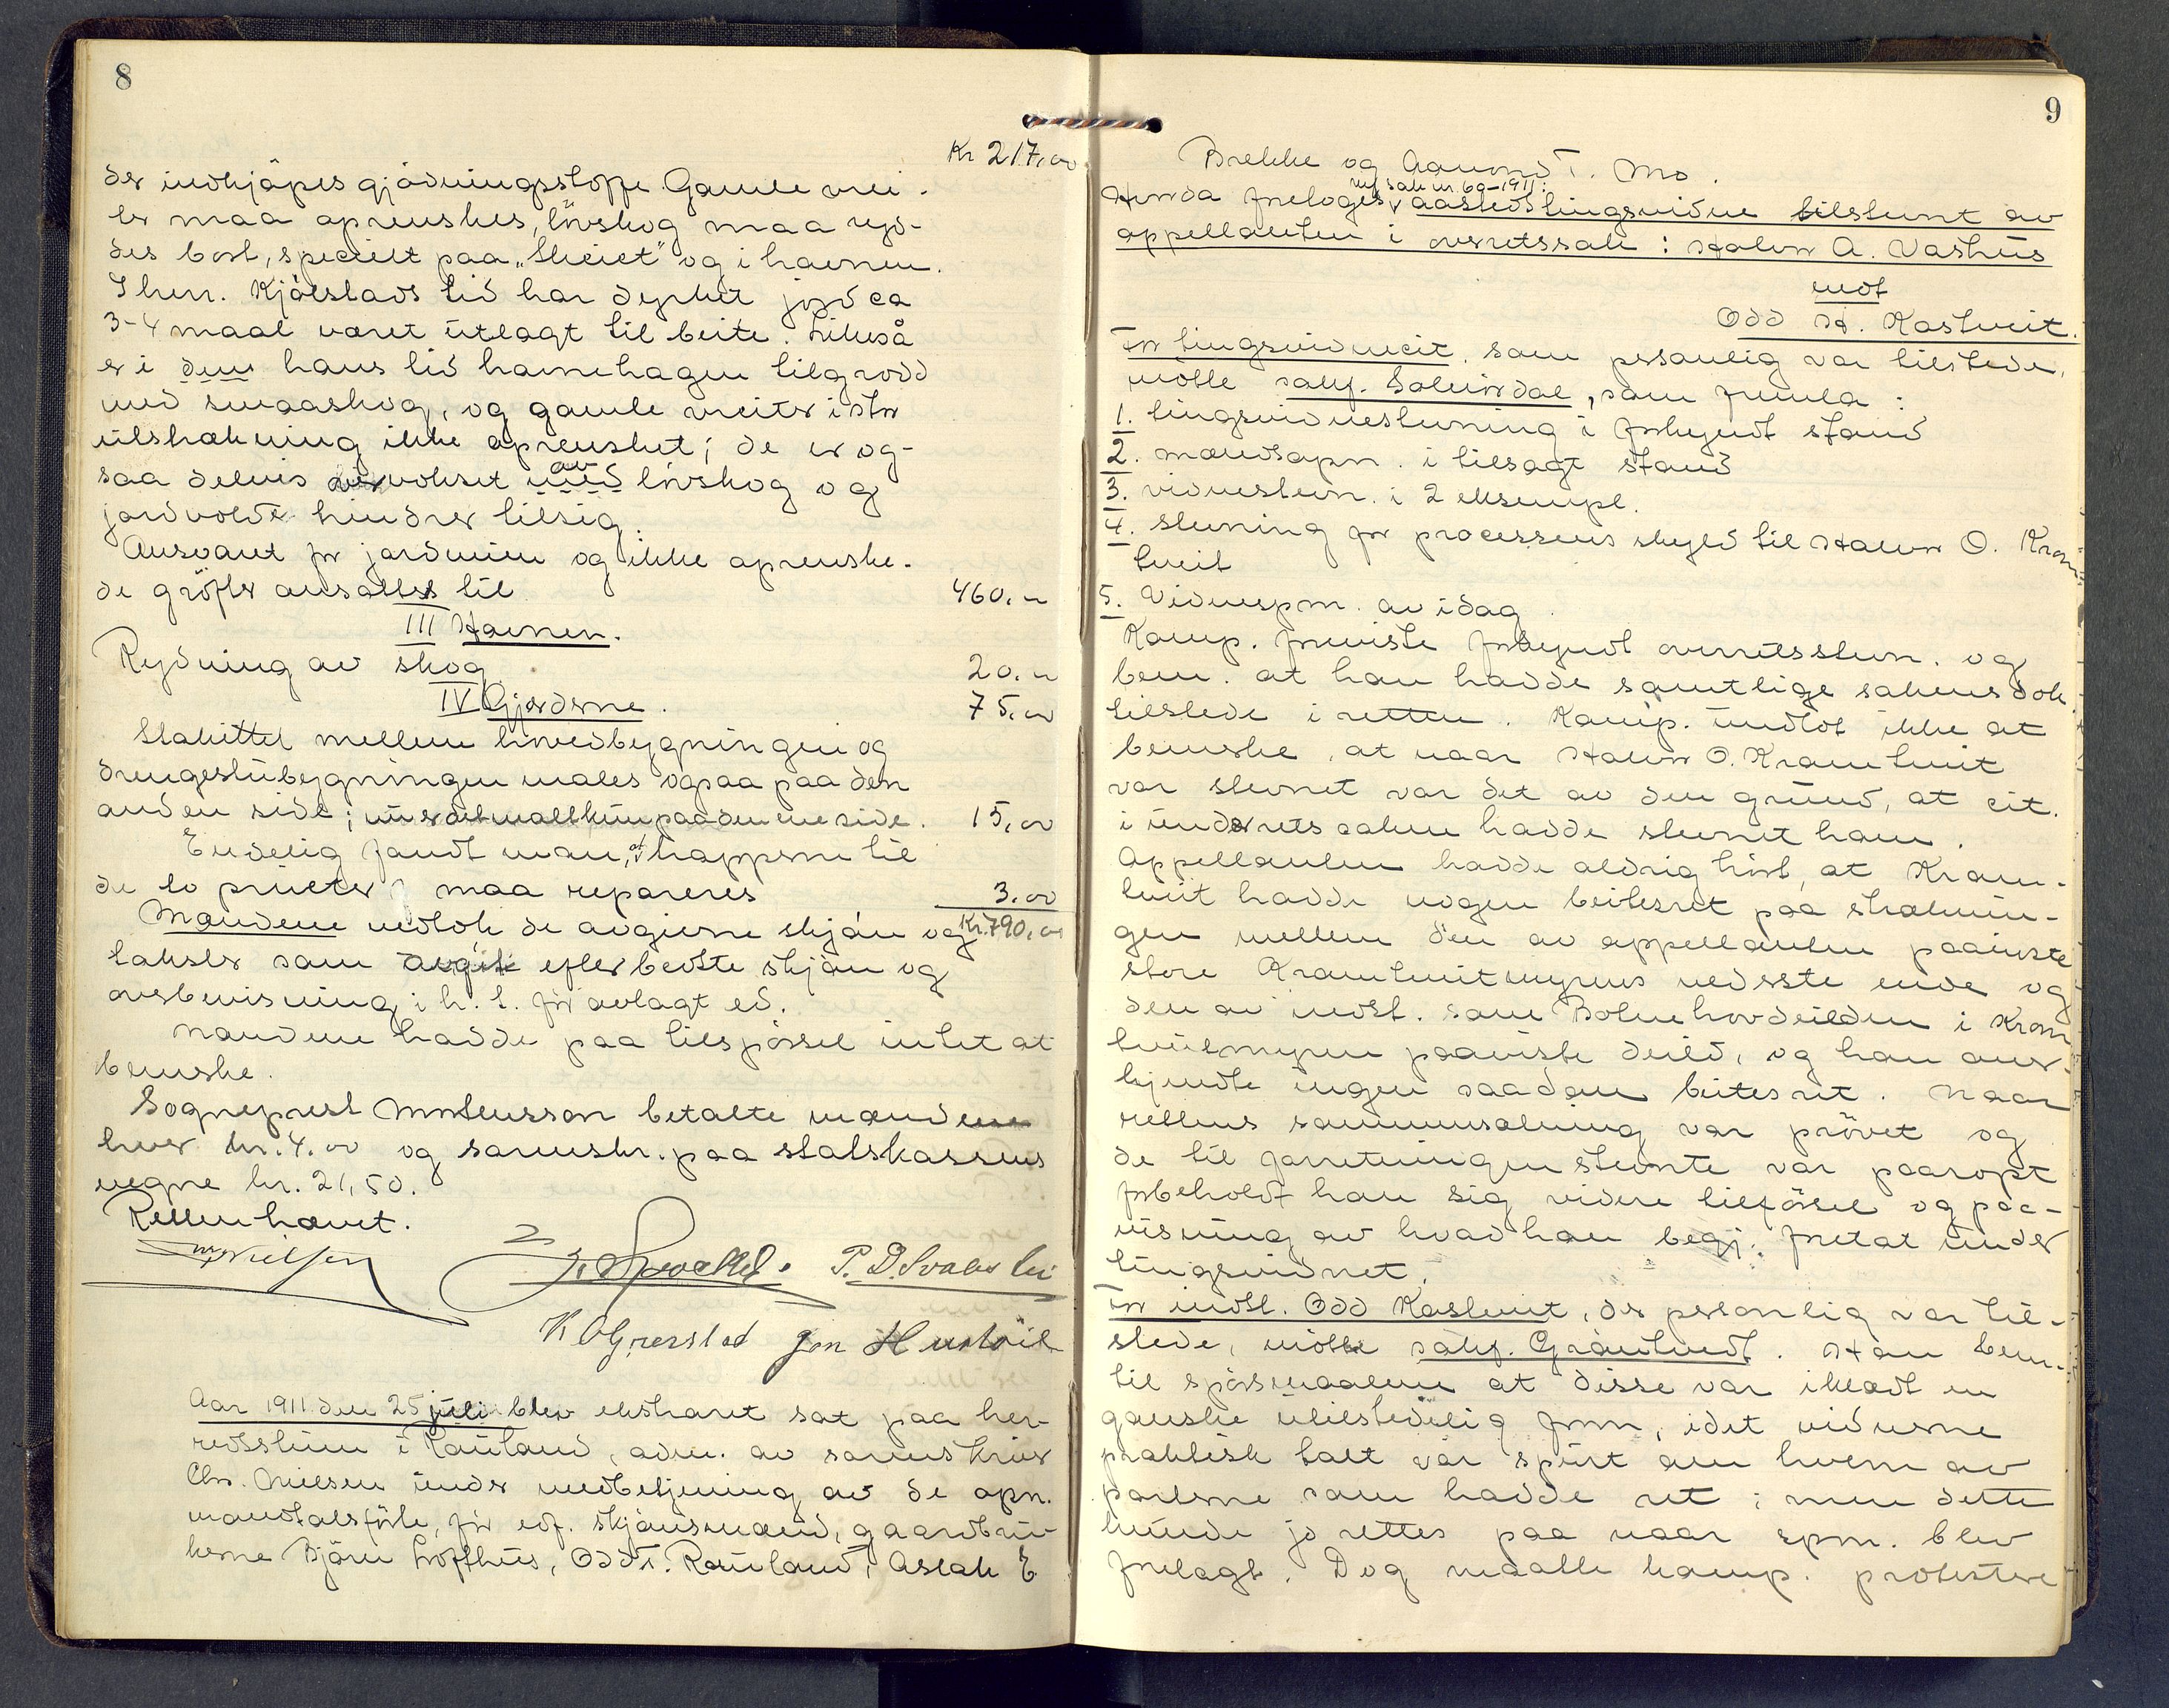 8
Kr 217,00
der indkjöpes gjödningsstoffe. Gamle vei-
ter maa oprenskes, lövskog maa ryd-
des bort, specielt paa "Skeiet" og i havnen.
I herr. Kjölstads tid har dyrket jord ca
3-4 maal været utlagt til beite. Likeså
er i dem hans tid havnehagen tilgrodd
med smaaskog, og gamle veiter i stor
utstrækning ikke oprensket; de er og-
saa delvis overvokset med av lövskog og
jordvolde hindrer tilsig.
Ansvaret for jordveien og ikke oprenske-
de gröfter ansattes til 460,00
III Havnen.
Rydning av skog 20,00
IV Gjerderne. 75,00
Stakittet mellem hovedbygningen og
drengestubygningen males ogsaa paa den
anden side; nu er det malt kun paa den ene side. 15,00
Endelig fandt man, at trapperne til
de to priveter maa repareres 3,00
Mændene vedtok de avgivne skjön og Kr. 790,00
takster som avgit efter bedste skjön og
overbevisning i h. t. för avlagt ed.
Mændene hadde paa tilspörsel intet at
bemerke.
Sogneprest Mortensson betalte mændene
hver kr. 4.00 og sorenskr. paa statskassens
vegne kr. 21,50.
Retten hævet.
Chr Nielsen
P. D. Svalastu
Jon H
Aar 1911 den 25 juli blev ekstraret sat paa her-
redsstuen i Rauland, adm. av sorenskriver
Chr. Nielsen under medbetjening av de opn.
mandtalsförte, för edf. skjönsmænd, gaardbru-
kerne Björn Lofthus, Odd T. Rauland, Aslak E
9
Brekke og Aamund T. Mo.
Hvorda foretoges v. nyt sak nr. 60-1911: aastedstingsvidne tilstevnt av
appellanten i overretssak: Halvor A. Vashus
mot
Odd H. Kostveit.
For tingsvidnecit. som personlig var tilstede,
mötte sakf. , som fremla:
1. tingsvidnestevning i forkyndt stand
2. mændsopn. i tilsagt stand
3. vidnestevn. i 2 eksempl.
4. stevning for processens skyld til Halvor O. Krom-
tveit
5. Vidnespm. av idag.
Komp. foreviste forkyndt overretsstevn. og
bem. at han hadde samtlige sakens dok.
tilstede i retten. Komp. undlot ikke at
bemerke, at naar Halvor O. Kromtveit
var stevnet var det av den grund, at cit.
i underretssaken hadde stevnet ham.
Appellanten hadde aldrig hört, at Krom-
tveit hadde nogen beitesret paa stræknin-
gen mellem den av appellanten paaviste
store Kromtveitmyrens nederste ende og
den av indst. som Bolmehovdeilden i Krom
tveitmyren paaviste deild, og han aner-
kjendte ingen saadan beitesret. Naar
rettens sammensætning var prövet og
de til forretningen stevnte var paaropt
forbeholdt han sig videre tilförsel og paa-
visning av hvad han begj. foretat under
tingsvidnet.
For indst. Odd Kostveit, der personlig var til-
stede, mötte sakf. Gröntvedt. Han bem.
til spörsmaalene at disse var iklædt en
ganske utilstedelig form, idet vidnerne
praktisk talt var spurt om hvem av
parterne som hadde ret; men dette
kunde jo rettes paa naar spm. blev
frelagt. Dog maatte komp. protestere